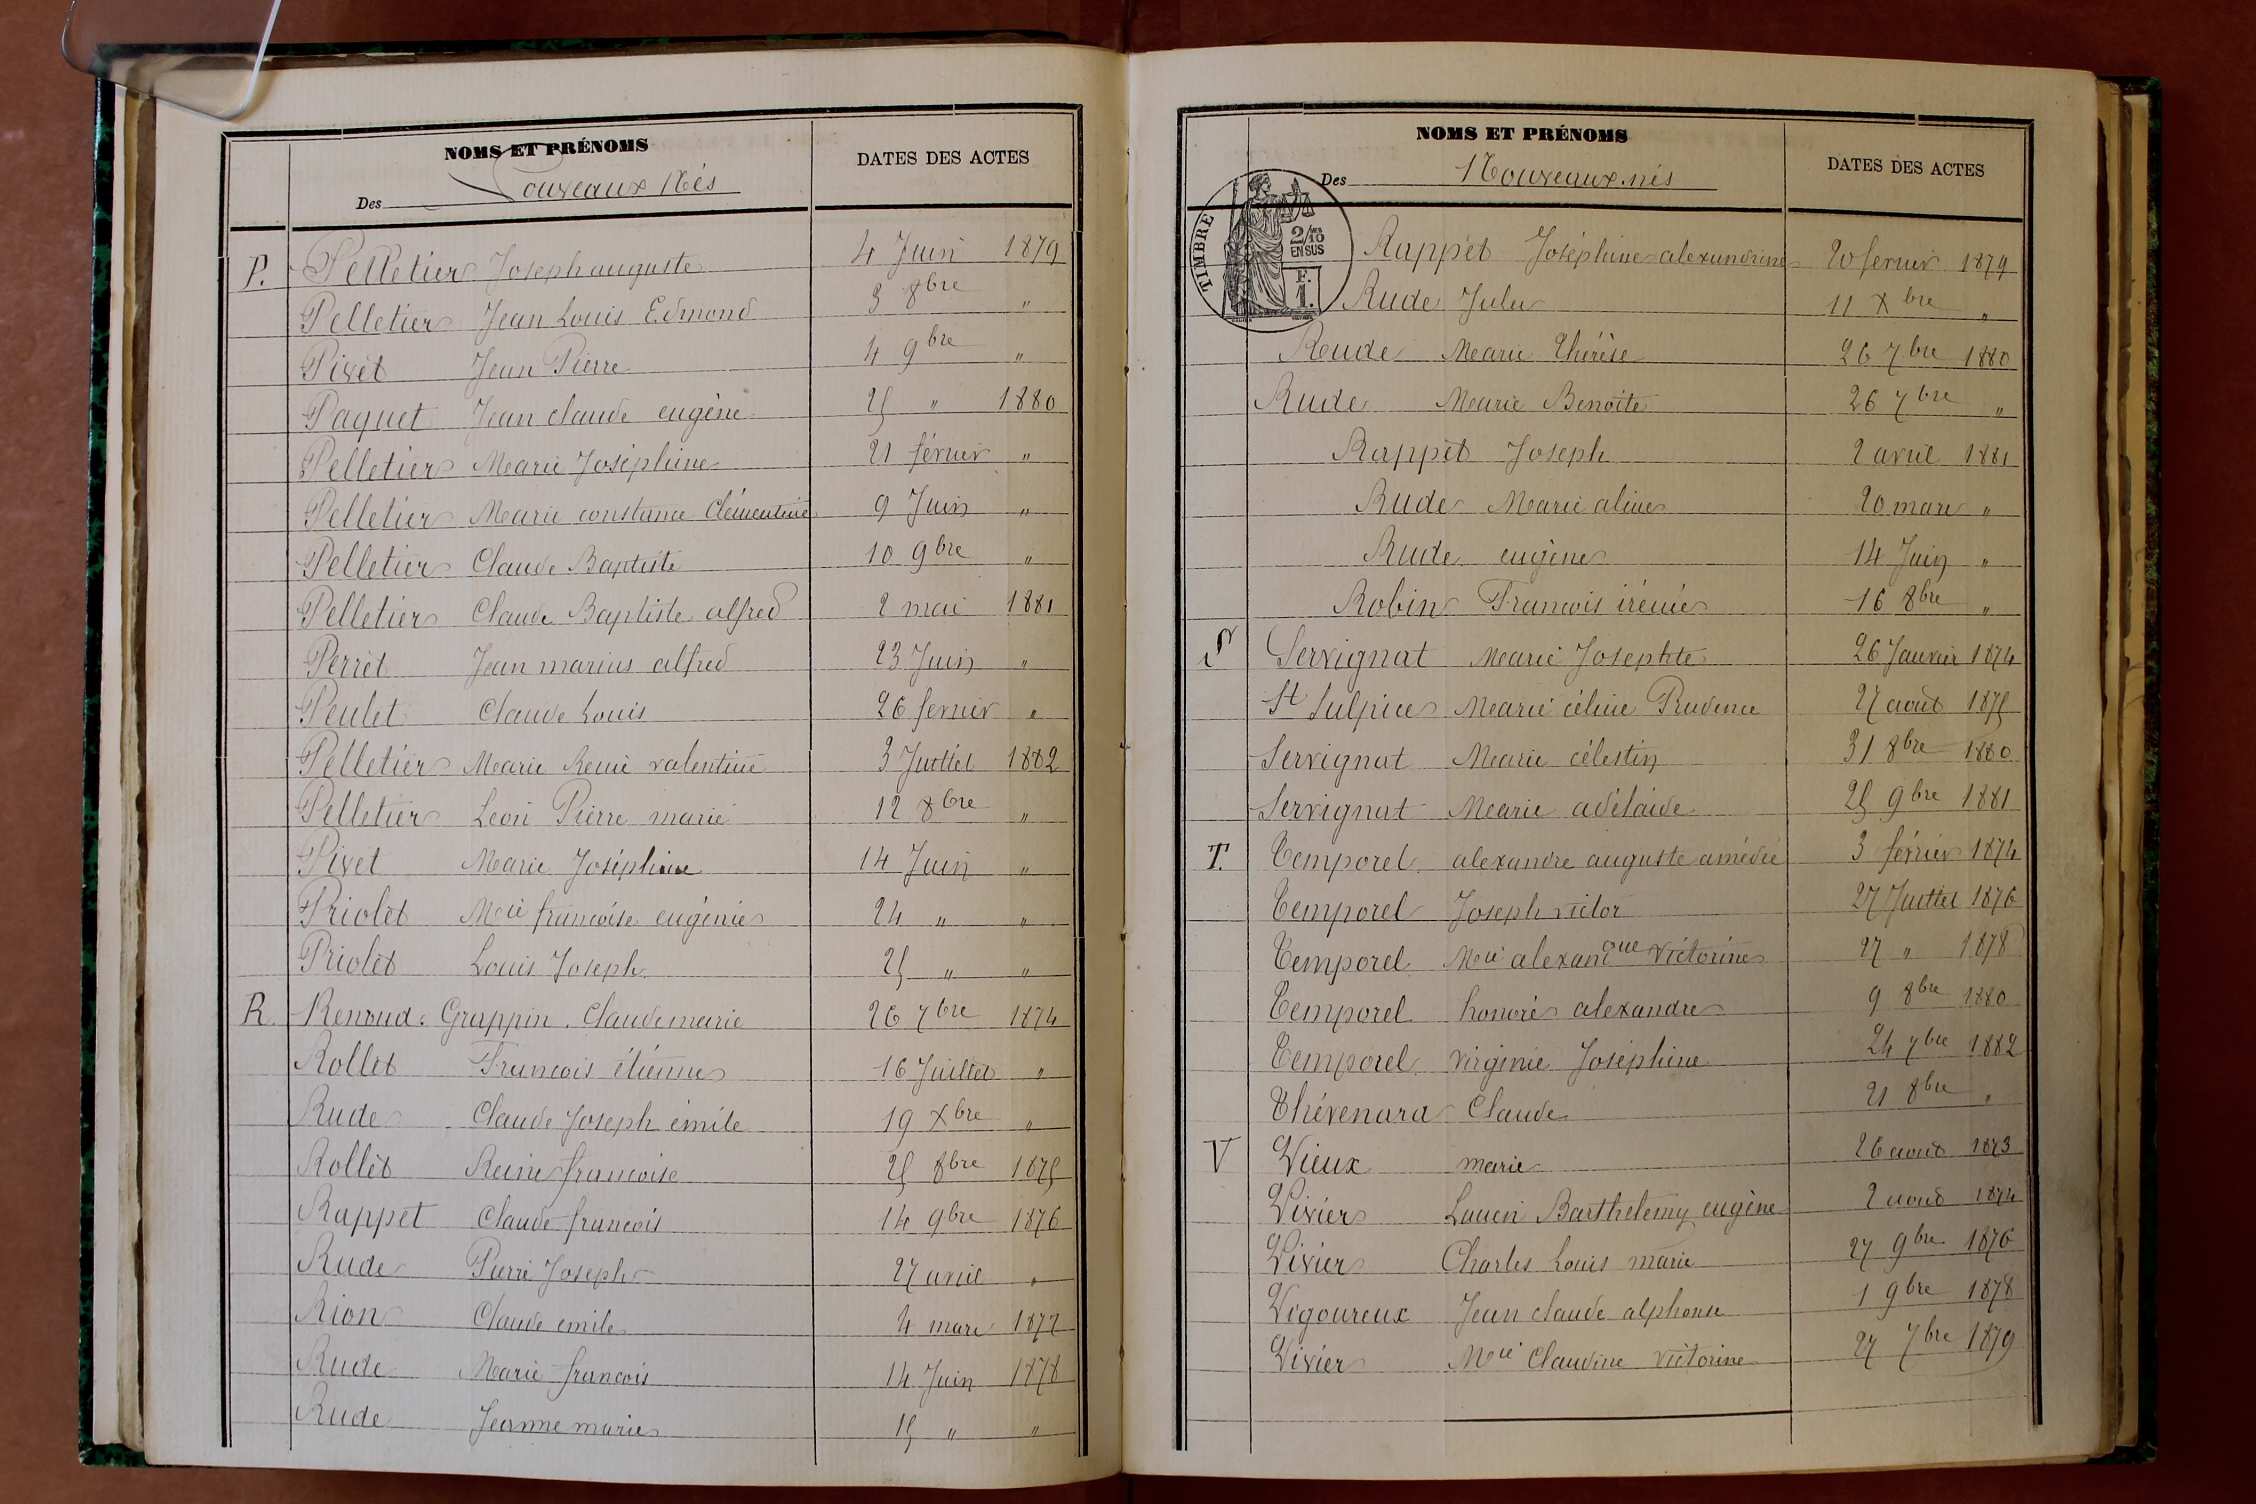 NOMS ET PRÉNOMS
DATES DES ACTES
Des Nouveaux Nés
P. Pelletier Joseph auguste 4 Juin 1879
Pelletier Jean Louis Edmond 3 8bre "
Pivet Jean Pierre 4 9bre "
Paquet Jean claude eugène 25 " 1880
Pelletier Marie Joséphine 21 février "
Pelletier Marie constance Clémentine 9 Juin "
Pelletier Claude Baptiste 10 9bre "
Pelletier Claude Baptiste alfred 2 mai 1881
Perret Jean marius alfred 23 Juin "
Peulet Claude Louis 26 fevrier "
Pelletier Marie Renie valentine 3 Juillet 1882
Pelletier Leon Pierre marie 12 8bre "
Pivet Marie Joséphine 14 Juin "
Priolet Mie francoise eugénie 24 " "
Priolet Louis Joseph 25 " "
R. Renoud-Grappin Claude marie 26 7bre 1874
Rollet Francois étienne 16 Juillet "
Rude Claude Joseph émile 19 Xbre "
Rollet Reine francoise 25 8bre 1875
Rappet Claude francois 14 9bre 1876
Rude Pierre Joseph 27 avril "
Rion Claude emile 4 mars 1877
Rude Marie francois 14 Juin 1878
Rude Jeanne marie 15 " "
NOMS ET PRÉNOMS
DATES DES ACTES
Des Nouveaux-nés
TIMBRE
2/10 MES
EN SUS
F.
1.
Rappet Joséphine alexandrine 20 fevrier 1879
Rude Jules 11 Xbre "
Rude Marie Thérèse 26 7bre 1880
Rude Marie Benoite 26 7bre "
Rappet Joseph 2 avril 1881
Rude Marie aline 20 mars "
Rude eugène 14 Juin "
Robin Francois irénée 16 8bre "
S Servignat Marie Josephte 26 Janvier 1874
St Sulpice Marie céline Prudence 27 août 1875
Servignat Marie célestin 31 8bre 1880
Servignat Marie adélaide 25 9bre 1881
T. Temporel alexandre auguste amédée 3 février 1874
Temporel Joseph victor 27 Juillet 1876
Temporel Mie alexanrine Victorine 27 " 1878
Temporel honoré alexandre 9 8bre 1880
Temporel virginie Joséphine 24 7bre 1882
Thévenard Claude 21 8bre "
V Vieux marie 26 aout 1873
Vivier Lucien Barthelemy eugène 2 aout 1874
Vivier Charles Louis marie 27 9bre 1876
Vigoureux Jean claude alphonse 1 9bre 1878
Vivier Mie Claudine Victorine 27 7bre 1879